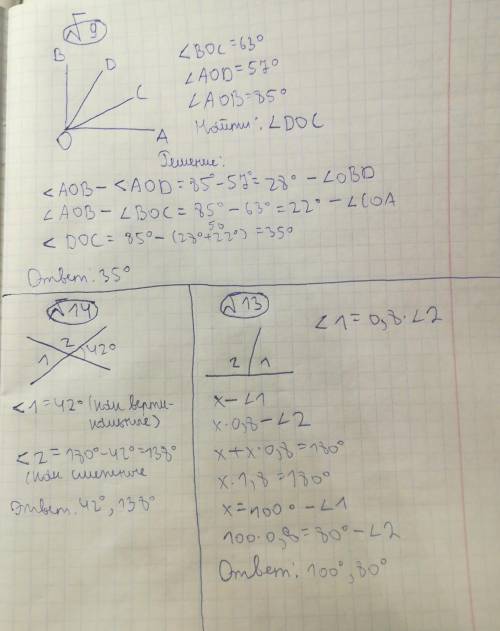 №9
B
D
C
O
A
∠BOC=63°
∠AOD=57°
∠AOB=85°
Найти: ∠DOC
Решение:
∠AOB - ∠AOD = 85°-57°=28° - ∠OBD
∠AOB - ∠BOC = 85° - 63°=22° - ∠COA
50
∠ DOC = 85° - (28°+22°) = 35°
Ответ. 35°
№14
1 2 42°
∠1=42° (как верти-
кальные)
∠2=180°-42°=138°
(как смежные
Ответ. 42°, 138°
№13
∠1=0,8·∠2
2 1
x - ∠1
x·0,8 - ∠2
x+x·0,8=180°
x·1,8=180°
x=100° - ∠1
100·0,8=80° - ∠2
Ответ: 100°, 80°